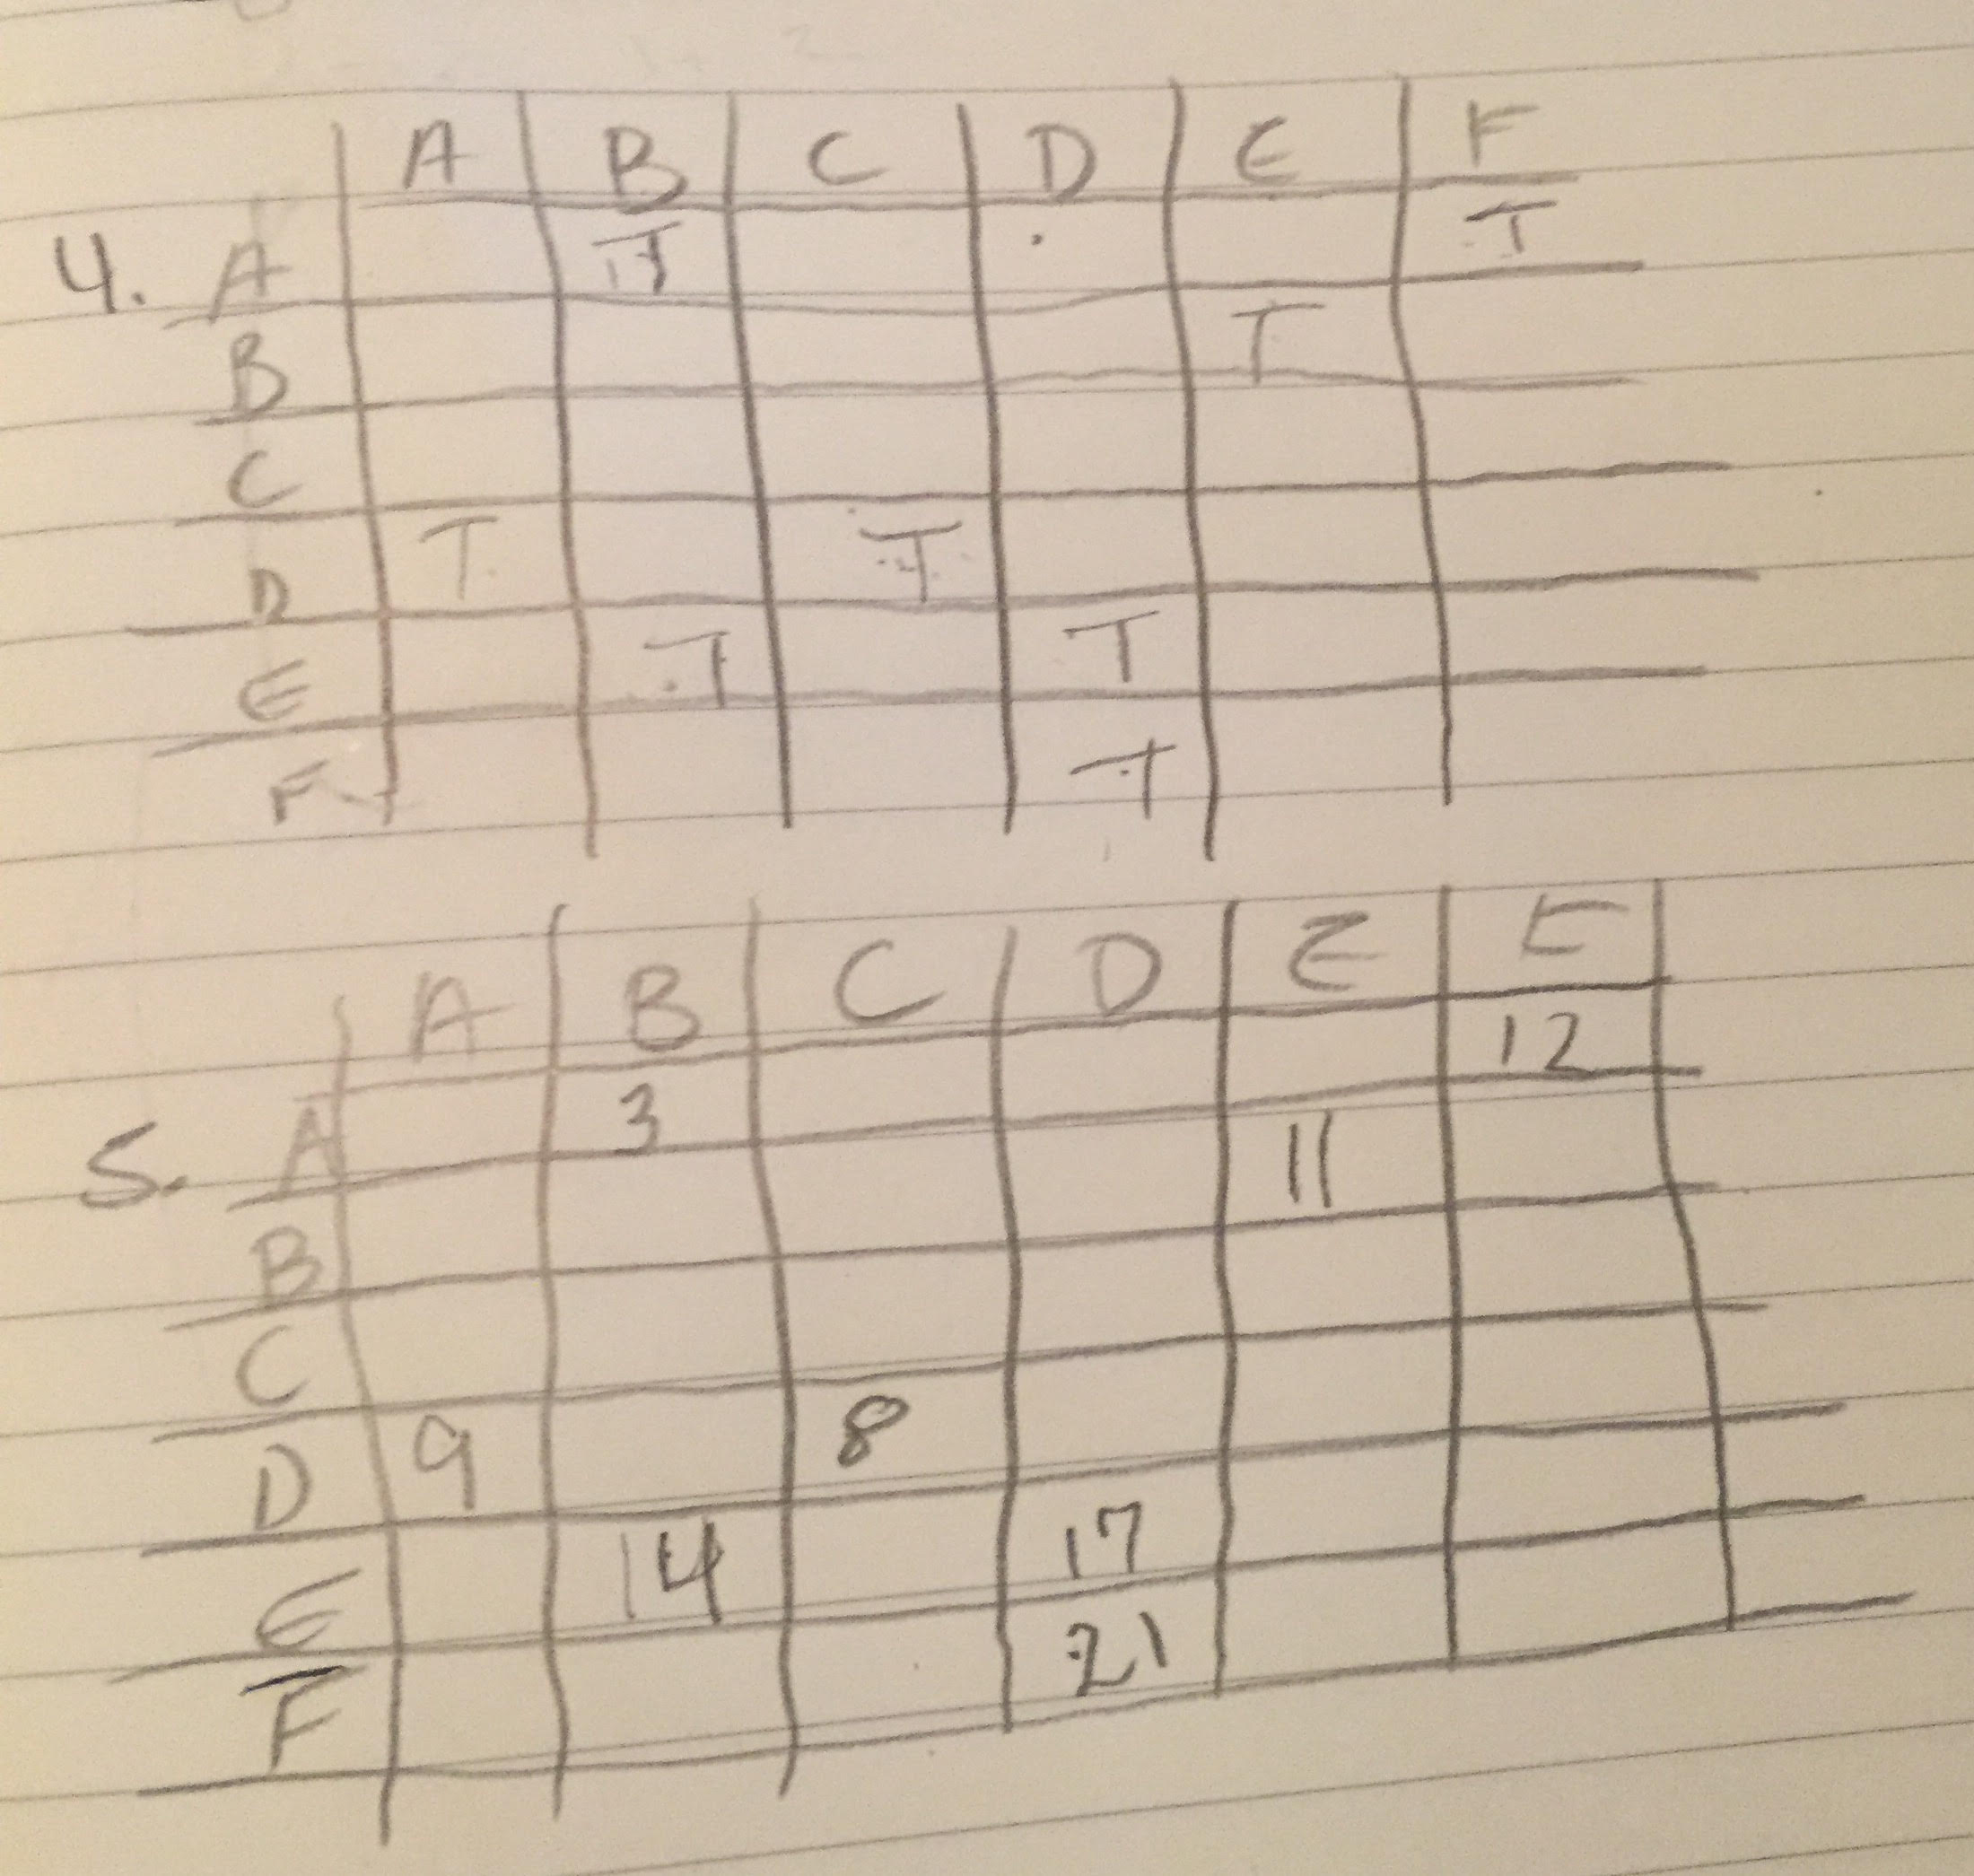 A B C D E F
4. A T T
B T
C
D T T
E T T
F T
A B C D E F
5. A 3 12
B 11
C
D 9 8
E 14 17
F 21